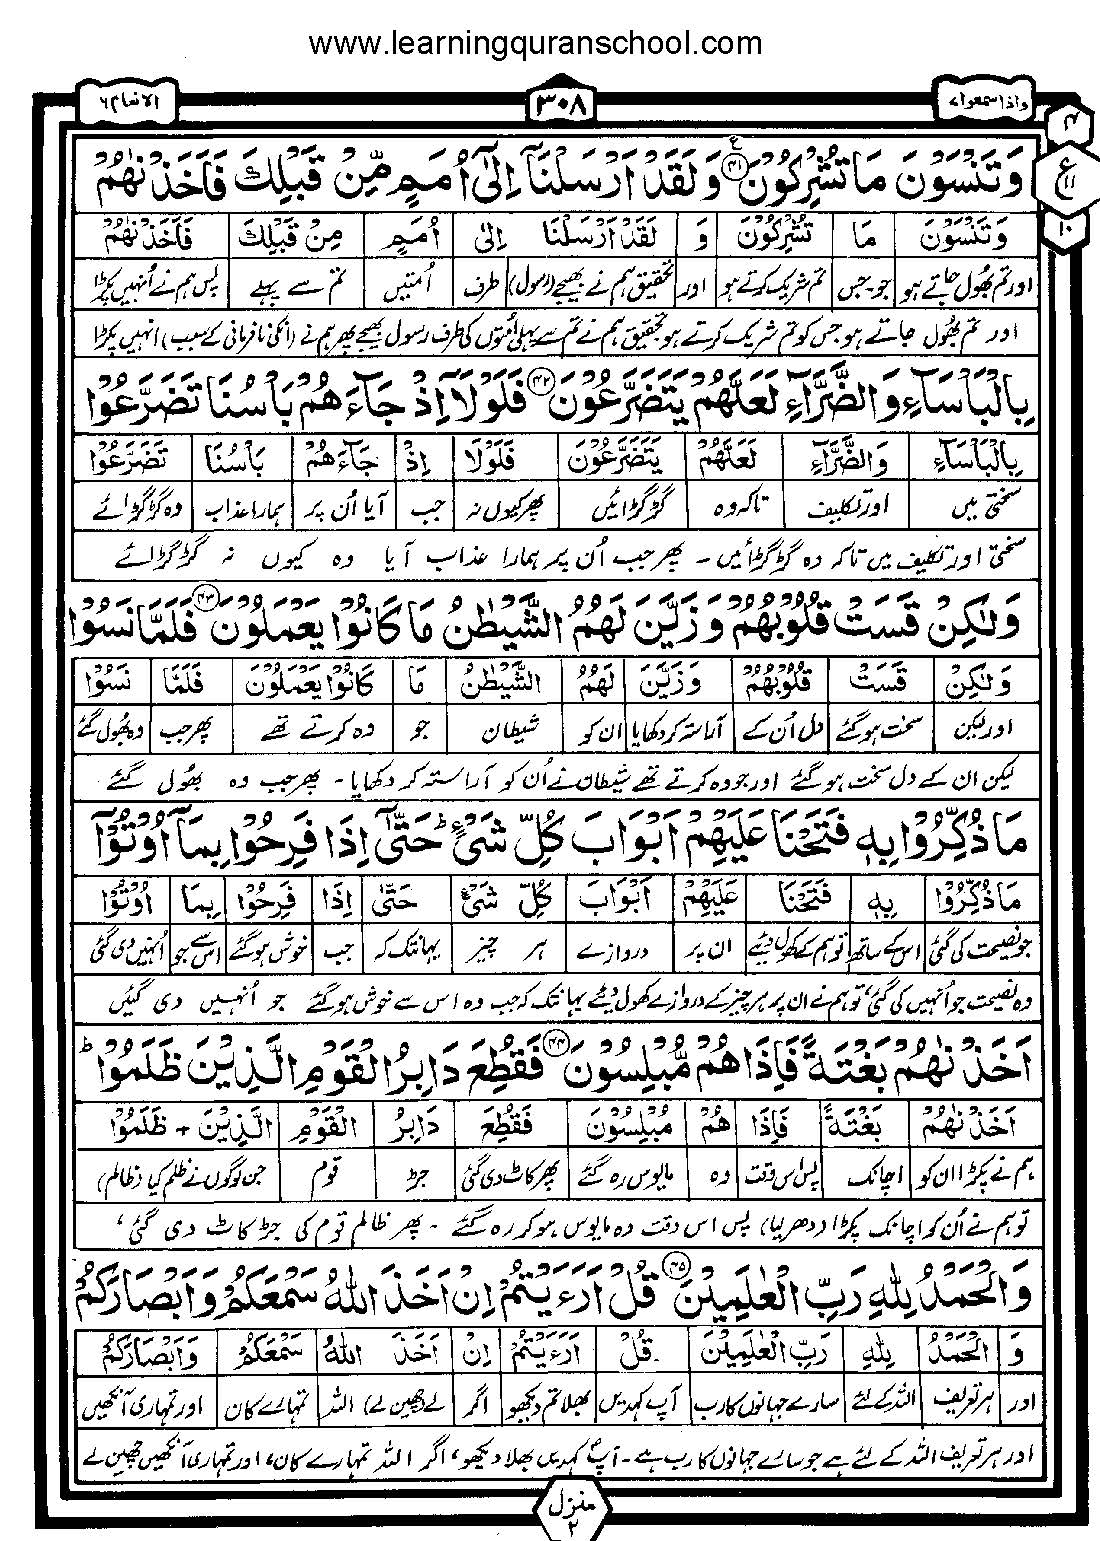 www.learningquranschool.com
واذا سمعوا ۷
۳۰۸
الانعام ۶
ع
۱۱
۱۰
وَتَنْسَوْنَ مَا تُشْرِكُوْنَ ﴿۴۱﴾ وَلَقَدْ اَرْسَلْنَاۤ اِلٰۤى اُمَمٍ مِّنْ قَبْلِكَ فَاَخَذْنٰهُمْ
وَتَنْسَوْنَ مَا تُشْرِكُوْنَ وَ لَقَدْ اَرْسَلْنَا اِلٰى اُمَمٍ مِنْ قَبْلِكَ فَاَخَذْنٰهُمْ
اور تم بھول جاتے ہو جو۔جس تم شریک کرتے ہو اور تحقیق ہم نے بھیجے (رسول) طرف اُمتیں تم سے پہلے پس ہم نے اُنہیں پکڑا
اور تم بھُول جاتے ہو جس کو تم شریک کرتے ہو تحقیق ہم نے تم سے پہلی اُمتوں کی طرف رسول بھیجے پھر ہم نے (انکی نافرمانی کے سبب) انہیں پکڑا
بِالْبَاْسَآءِ وَالضَّرَّآءِ لَعَلَّهُمْ يَتَضَرَّعُوْنَ ﴿۴۲﴾ فَلَوْلَاۤ اِذْ جَآءَهُمْ بَاْسُنَا تَضَرَّعُوْا
بِالْبَاْسَآءِ وَالضَّرَّآءِ لَعَلَّهُمْ يَتَضَرَّعُوْنَ فَلَوْلَا اِذْ جَآءَهُمْ بَاْسُنَا تَضَرَّعُوْا
سختی میں اور تکلیف تاکہ وہ گڑگڑائیں پھر کیوں نہ جب آیا اُن پر ہمارا عذاب وہ گڑگڑائے
سختی اور تکلیف میں تاکہ وہ گڑگڑائیں ۔ پھر جب اُن پر ہمارا عذاب آیا وہ کیوں نہ گڑگڑائے
وَلٰكِنْ قَسَتْ قُلُوْبُهُمْ وَزَيَّنَ لَهُمُ الشَّيْطٰنُ مَا كَانُوْا يَعْمَلُوْنَ ﴿۴۳﴾ فَلَمَّا نَسُوْا
وَلٰكِنْ قَسَتْ قُلُوْبُهُمْ وَزَيَّنَ لَهُمُ الشَّيْطٰنُ مَا كَانُوْا يَعْمَلُوْنَ فَلَمَّا نَسُوْا
اور لیکن سخت ہو گئے دل اُن کے آراستہ کر دکھایا ان کو شیطان جو وہ کرتے تھے پھر جب وہ بھول گئے
لیکن ان کے دل سخت ہو گئے اور جو وہ کرتے تھے شیطان نے اُن کو آراستہ کر دکھایا ۔ پھر جب وہ بھُول گئے
مَا ذُكِّرُوْا بِهٖ فَتَحْنَا عَلَيْهِمْ اَبْوَابَ كُلِّ شَيْءٍ ؕ حَتّٰۤى اِذَا فَرِحُوْا بِمَاۤ اُوْتُوْۤا
مَا ذُكِّرُوْا بِهٖ فَتَحْنَا عَلَيْهِمْ اَبْوَابَ كُلِّ شَيْءٍ حَتّٰى اِذَا فَرِحُوْا بِمَا اُوْتُوْا
جو نصیحت کی گئی اس کے ساتھ تو ہم کے کھول دیئے ان پر دروازے ہر چیز یہانتک کہ جب خوش ہو گئے اس سے جو اُنہیں دی گئی
وہ نصیحت جو اُنہیں کی گئی، تو ہم نے ان پر ہر چیز کے دروازے کھول دیئے یہانتک کہ جب وہ اس سے خوش ہو گئے جو اُنہیں دی گئیں
اَخَذْنٰهُمْ بَغْتَةً فَاِذَا هُمْ مُّبْلِسُوْنَ ﴿۴۴﴾ فَقُطِعَ دَابِرُ الْقَوْمِ الَّذِيْنَ ظَلَمُوْا ؕ
اَخَذْنٰهُمْ بَغْتَةً فَاِذَا هُمْ مُبْلِسُوْنَ فَقُطِعَ دَابِرُ الْقَوْمِ الَّذِيْنَ + ظَلَمُوْا
ہم نے پکڑا ان کو اچانک پس اس وقت وہ مایوس رہ گئے پھر کاٹ دی گئی جڑ قوم جن لوگوں نے ظلم کیا (ظالم)
تو ہم نے اُن کو اچانک پکڑا (دھر لیا) پس اس وقت وہ مایوس ہو کر رہ گئے ۔ پھر ظالم قوم کی جڑ کاٹ دی گئی،
وَالْحَمْدُ لِلّٰهِ رَبِّ الْعٰلَمِيْنَ ﴿۴۵﴾ قُلْ اَرَءَيْتُمْ اِنْ اَخَذَ اللّٰهُ سَمْعَكُمْ وَاَبْصَارَكُمْ
وَ الْحَمْدُ لِلّٰهِ رَبِّ الْعٰلَمِيْنَ قُلْ اَرَءَيْتُمْ اِنْ اَخَذَ اللّٰهُ سَمْعَكُمْ وَاَبْصَارَكُمْ
اور ہر تعریف اللہ کے لئے سارے جہانوں کا رب آپ کہدیں بھلا تم دیکھو اگر لے (چھین لے) اللہ تمہارے کان اور تمہاری آنکھیں
اور ہر تعریف اللہ کے لئے ہے جو سارے جہانوں کا رب ہے ۔ آپ کہدیں بھلا دیکھو، اگر اللہ تمہارے کان، اور تمہاری آنکھیں چھین لے
منزل
۲